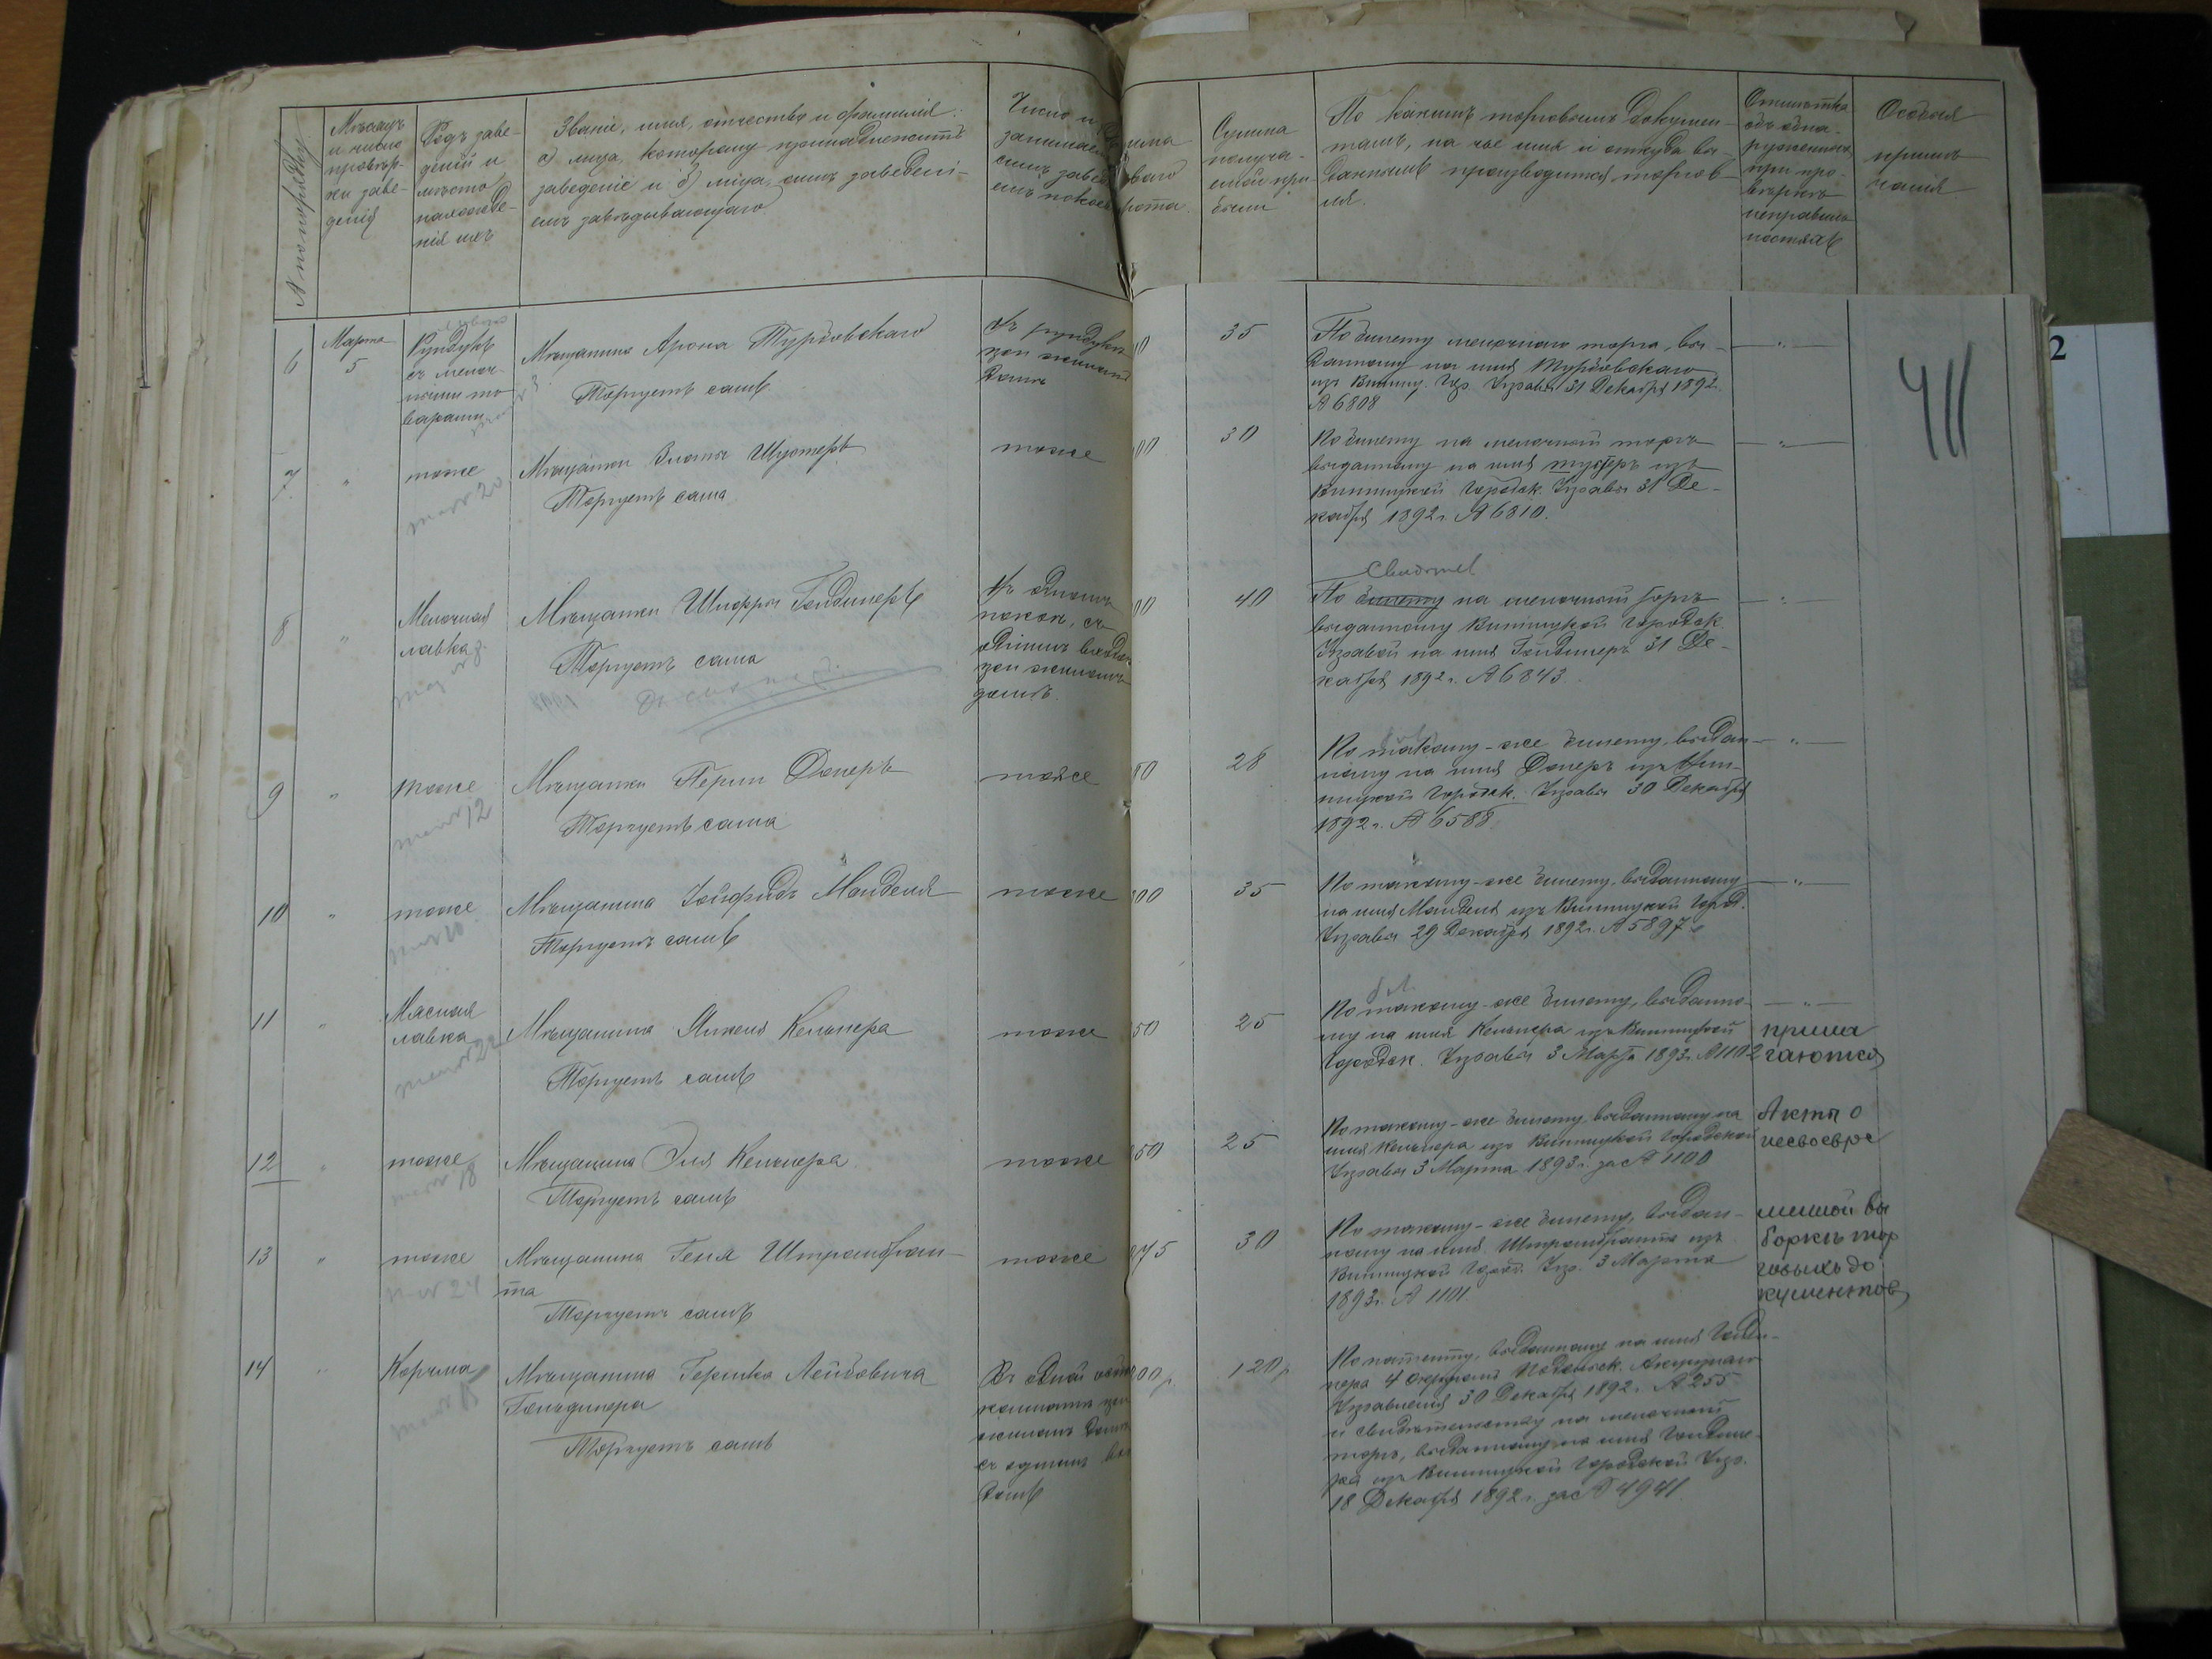 № по порядку
Мѣсяцъ
и число
провѣр-
ки заве-
денія
Родъ заве-
деній и
мѣсто
нахожде-
нія ихъ
Званіе, имя, отчество и фамилія:
а) лица, которому принадлежитъ
заведеніе и б) лица, симъ заведені-
емъ завѣдывающаго.
Число и
занимаем
симъ завед
емъ покоев
рота
Сумма
получа-
емой при-
были
По какимъ торговымъ докумен-
тамъ, на чье имя и откуда вы-
даннымъ производится торгов-
ля.
Отмѣтка
объ обна-
руженныхъ
при про-
вѣркѣ
неправиль
ностяхъ
Особыя
примѣ
чанія
6
Марта
5
Рундукъ
съ мелоч-
ными то
варами
Мѣщанина Арона Турбовскаго
Торгуетъ самъ
Въ рундукѣ
при жиломъ
домѣ
0
35
По билету мелочнаго торга, вы-
данному на имя Турбовскаго
изъ Винниц. Гор. Управы 31 Декабря 1892
№ 6808
— " —
411
7
"
тоже
20
Мѣщанки Златы Шустеръ
Торгуетъ сама
тоже
00
30
По билету на мелочный торгъ
выданному на имя Шустеръ изъ
Винницкой Городск. Управы 31 Де-
кабря 1892 г. № 6810.
— " —
8
"
Мелочная
лавка
Мѣщанки Шифры Гольдинеръ
Торгуетъ сама
Въ одномъ
покоѣ, съ
однимъ входом
при жиломъ
домѣ.
00
40
Свидѣтел
По билету на мелочный торгъ
выданному Винницкой Городск.
Управой на имя Гольдинеръ 31 Де-
кабря 1892 г. № 6843.
— " —
9
"
тоже
12
Мѣщанки Перли Донеръ
Торгуетъ сама
тоже
28
По такому-же билету, выдан-
ному на имя Донеръ изъ Вин-
ницкой Городск. Управы 30 Декабря
1892 г. № 6588
— " —
10
"
тоже
Мѣщанина Манделя
Торгуетъ самъ
тоже
00
35
По такому-же билету, выданному
на имя Манделя изъ Винницкой Город.
Управы 29 Декабря 1892 г. № 5897
— " —
11
"
Мясная
лавка
22
Мѣщанина Янкеля Кельнера
Торгуетъ самъ
тоже
50
25
По такому-же билету, выданно-
му на имя Кельнера изъ Винницкой
Городск. Управы 3 Марта 1893 г. № 1102
— " —
прила
гаются
12
"
тоже
18
Мѣщанина Эля Кельнера
Торгуетъ самъ
тоже
50
25
По такому-же билету, выданному на
имя Кельнера изъ Винницкой Городской
Управы 3 Марта 1893 г. за № 1100
Акты о
несвоевре
13
"
тоже
24
Мѣщанина Геня Штрамбран-
та
Торгуетъ самъ
тоже
75
30
По такому-же билету, выдан-
ному на имя Штрамбранта изъ
Винницкой Город. Упр. 3 Марта
1893 г. № 1101.
менной вы
боркѣ тор
говыхъ до
кументов
14
"
Корчма
Мѣщанина Гершка Лейбовича
Гольдинера
Торгуетъ самъ
Въ одной
комнатѣ при
жиломъ домѣ
съ однимъ вхо
домъ
00 р.
120 р.
По патенту, выданному на имя Гольди-
нера 4 Округомъ Подольск. Акцизнаго
Управленія 30 Декабря 1892 г. № 255
и свидѣтельству на мелочный
торгъ, выданному на имя Гольдине-
ра изъ Винницкой Городской Упр.
18 Декабря 1892 г. за № 4941
2